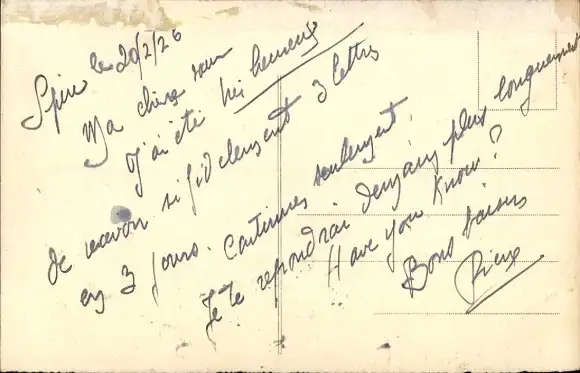 Spire le 20/2/26
Ma chère sœur
J'ai été très heureux
de recevoir si fidelement 3 lettres
en 3 jours. Continues seulement.
Je te repondrai demain plus longuement
Have you know?
Bons baisers